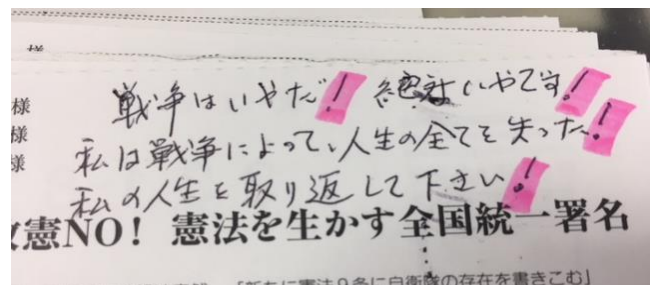 様
様
様
様
戦争はいやだ! 絶対いやです!
私は戦争によって、人生の全てを失った!
私の人生を取り返して下さい!
改憲NO! 憲法を生かす全国統一署名
「新たに憲法9条に自衛隊の存在を書きこむ」